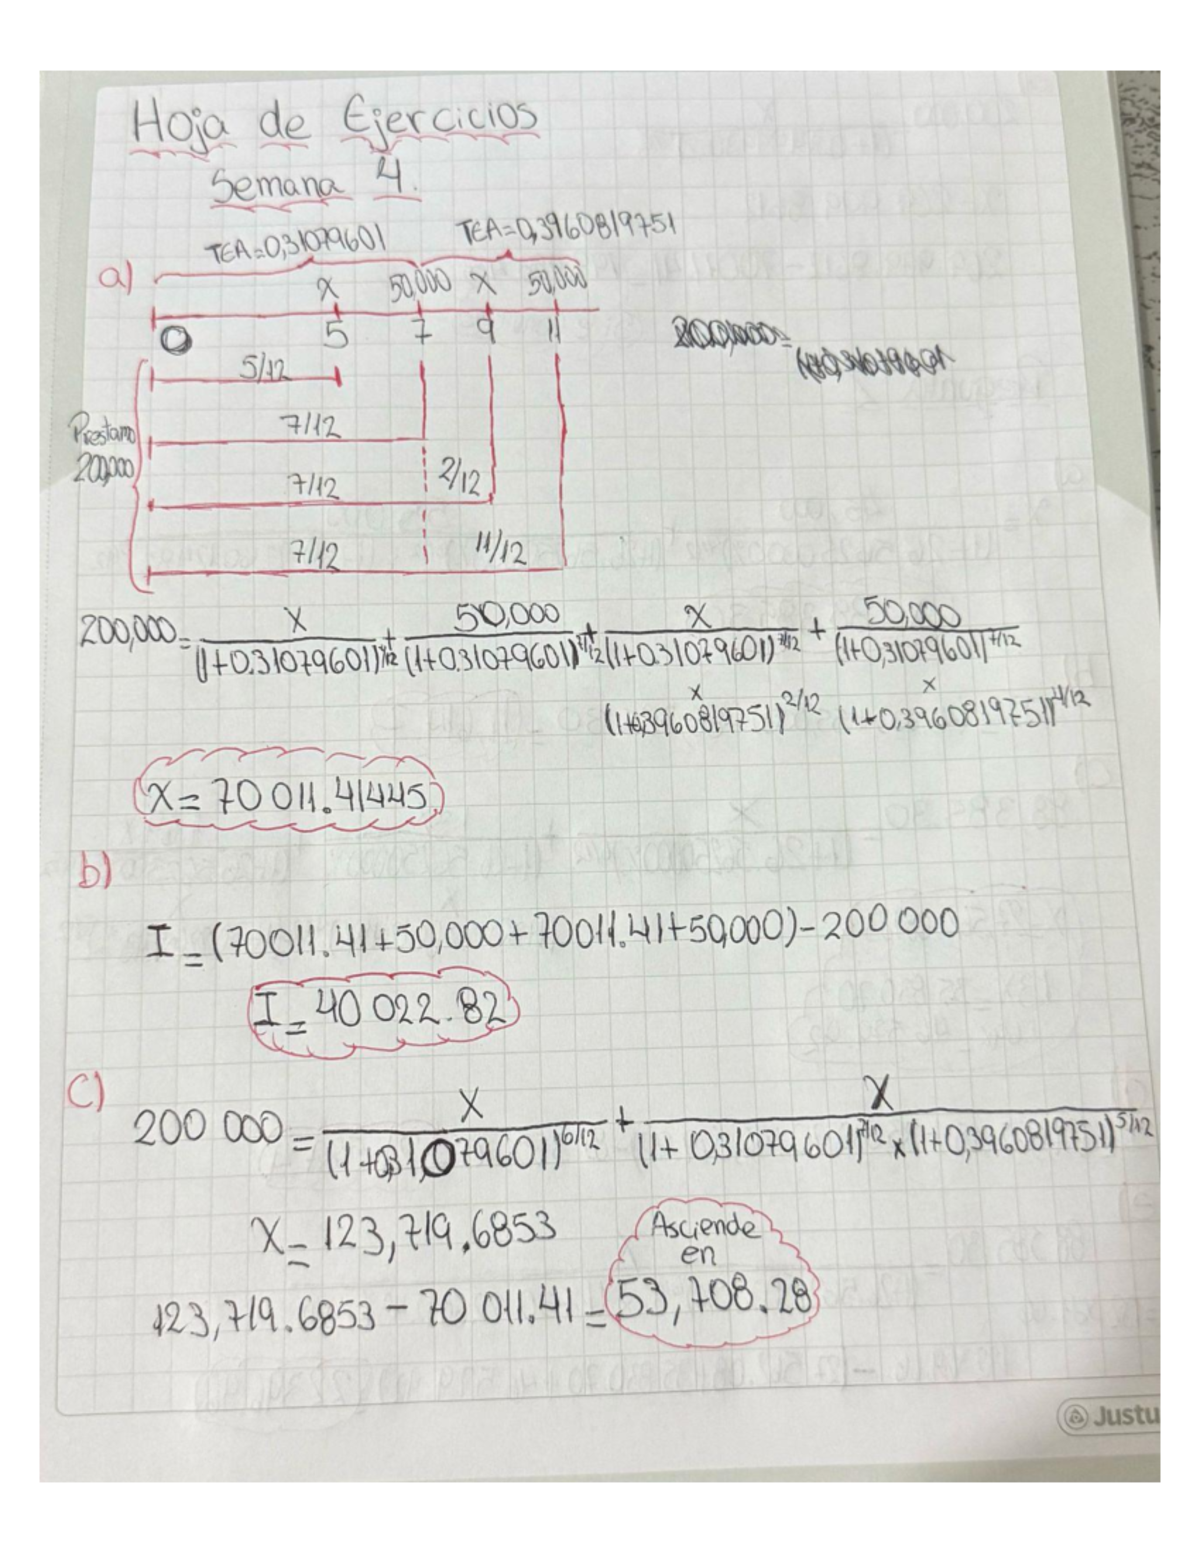 Hoja de Ejercicios
Semana 4.
TEA=0,31079601 TEA=0,3960819751
a) X 50,000 X 50,000
0 5 7 9 11
5/12
Prestamo
200,000
7/12
7/12 2/12
7/12 11/12
200,000 = X / (1+0.31079601)^5/12 + 50,000 / (1+0.31079601)^7/12 + X / (1+0.31079601)^7/12 + 50,000 / (1+0,31079601)^7/12
x (1+0,3960819751)^2/12 x (1+0,3960819751)^4/12
X = 70 011.41445
b)
I = (70011.41+50,000+70011.41+50,000)-200 000
I = 40 022.82
C)
200 000 = X / (1+0,31,079601)^6/12 + X / (1+0,31079601)^7/12 x (1+0,3960819751)^5/12
X = 123,719.6853
Asciende
en
123,719.6853 - 70 011.41 = 53,708.28
Justu